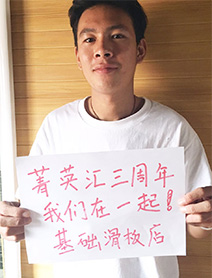 菁英汇三周年
我们在一起!
基础滑板店